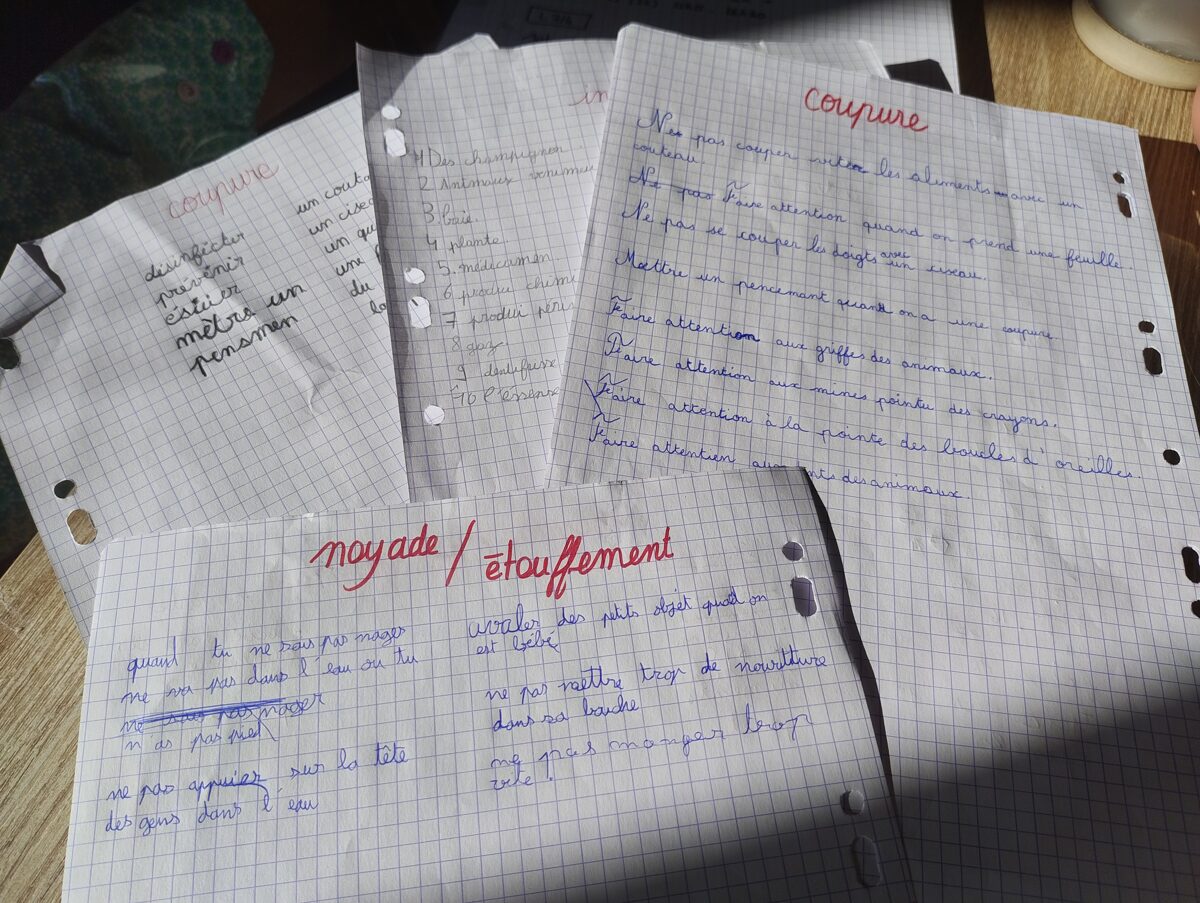 coupure
désinfécter
prévenir
éssuer
mètre un
pensmen
un couta
un cisea
un qu
une
du
la
in
1 Des champignon
2 animaux venimeu
3. baie.
4 plante
5. médecamen
6 produi chimi
7 produi péri
8 gaz
9 dentifrisse
10 l'essense
coupure
Ne pas couper les aliments avec un
couteau.
Ne pas Faire attention quand on prend une feuille.
Ne pas se couper les doigts avec un ciseau.
Mettre un pencemant quant on a une coupure.
Faire attention aux griffes des animaux.
Faire attention aux mines pointu des crayons.
Faire attention à la pointe des boucles d'oreilles.
Faire attention aux dents des animaux.
noyade / étouffement
quand tu ne sais pas nager
ne va pas dans l'eau ou tu
ne sais pas nager
n as pas pied
ne pas appuier sur la tête
des gens dans l'eau
avaler des petits objet quand on
est bébé
ne pas mettre trop de nourriture
dans sa bouche
ne pas manger trop
vite.